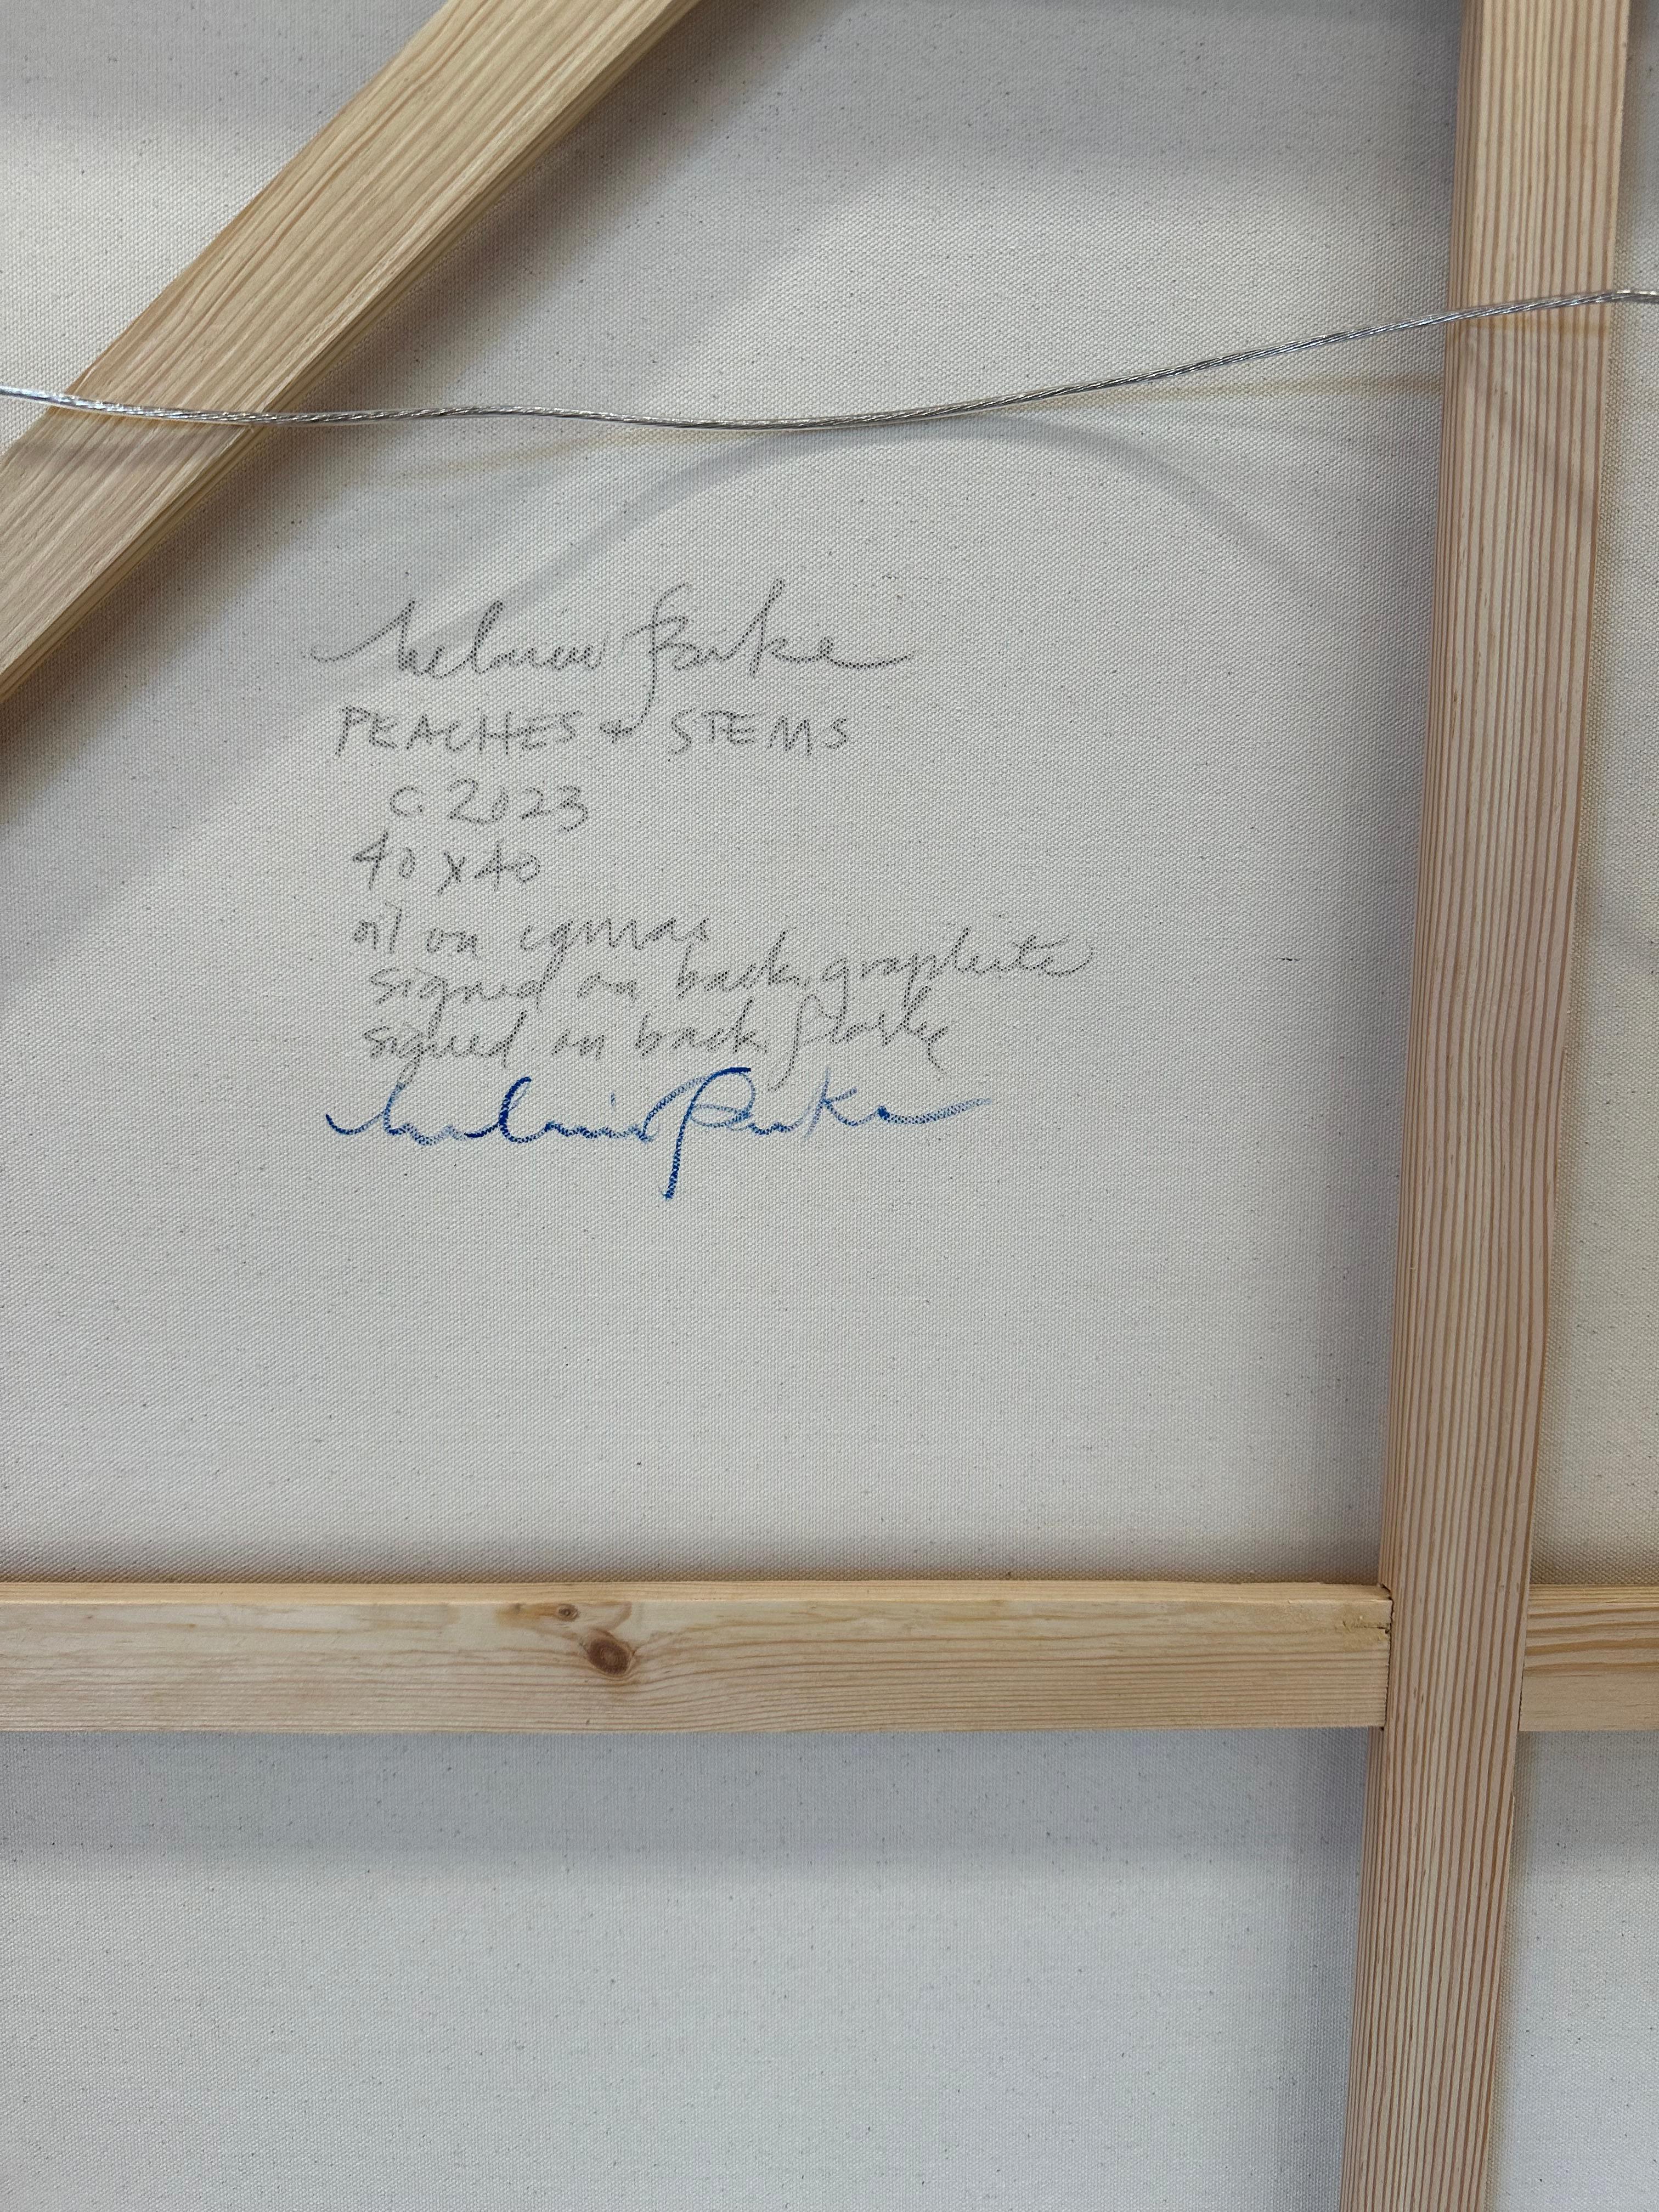 melanie Parke
PEACHES + STEMS
c. 2023
40 x 40
oil on canvas
signed on back, graphite
signed on back flashe
melanie Parke